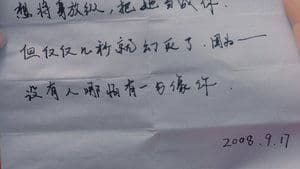 想将身放纵，把她当成你．
但仅仅几秒就幻灭了．因为——
没有人哪怕有一点像你．
2008.9.17